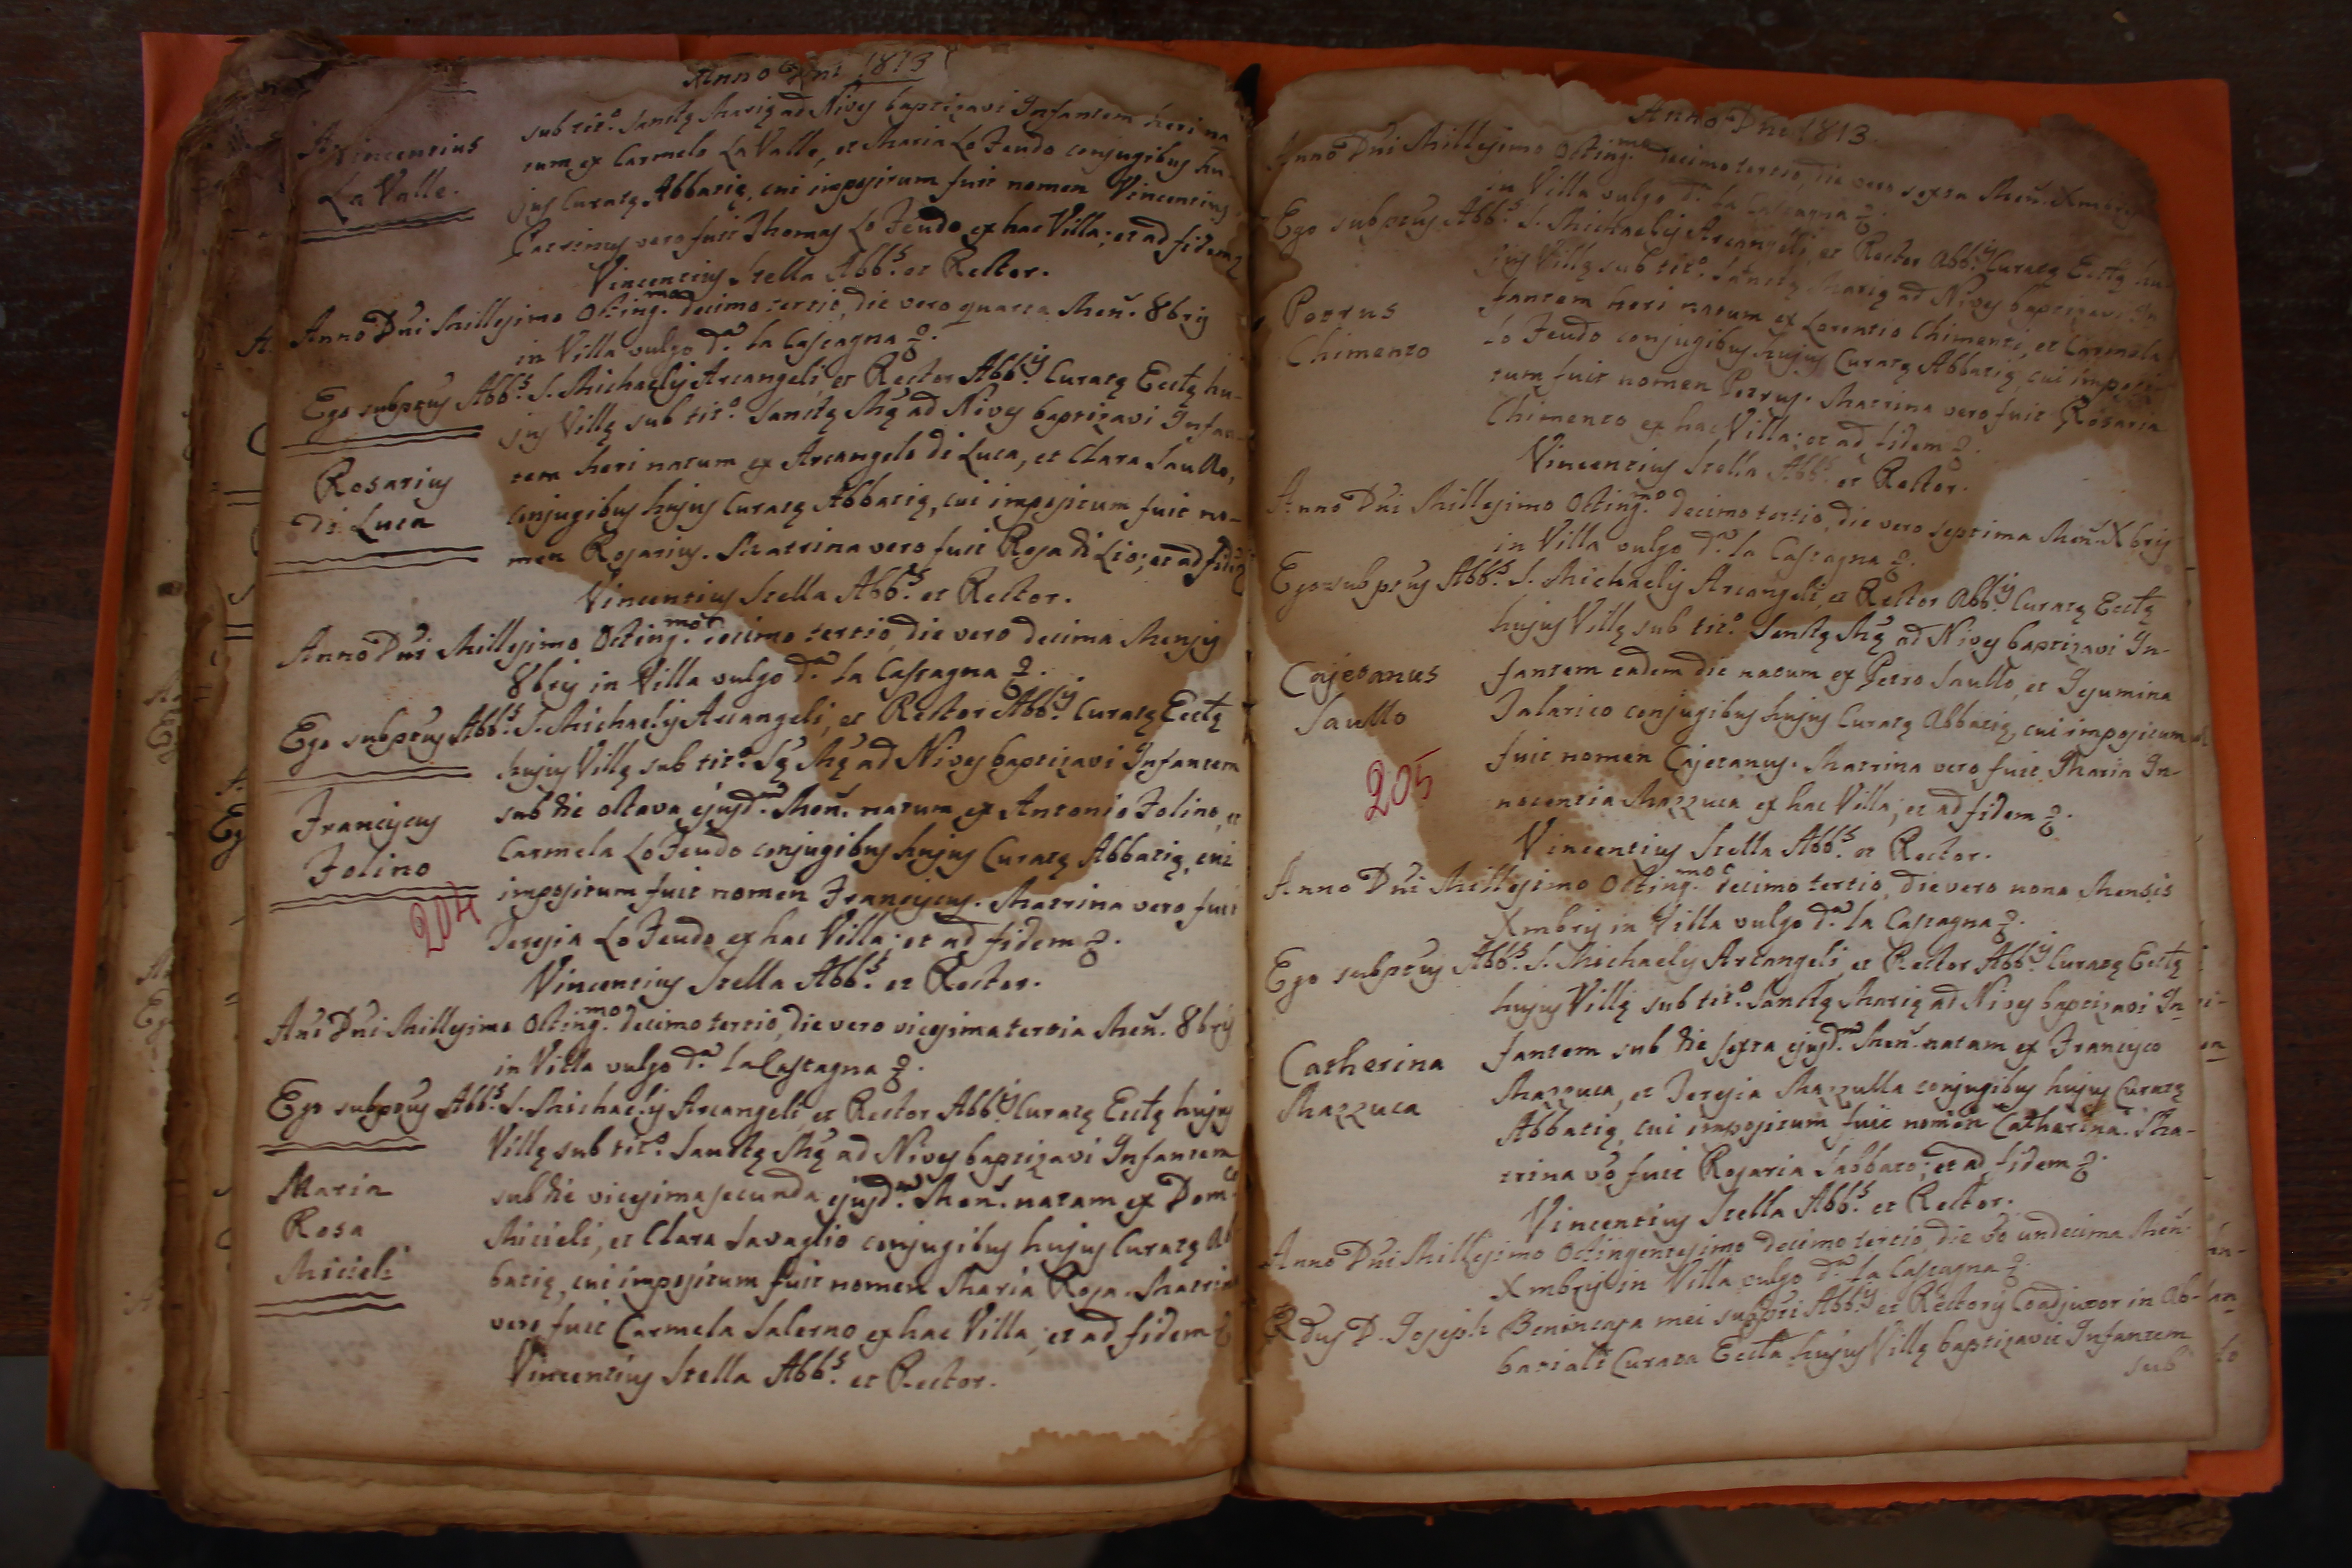 Anno Dni 1813
Vincentius
La Valle.
sub tit.º Sanctę Marię ad Nives baptizavi Infantem heri na
tum ex Carmelo La Valle, et Maria Lo Feudo conjugibus hu-
jus Curatę Abbatię, cui impositum fuit nomen Vincentius.
Patrinus vero fuit Thomas Lo Feudo ex hac Villa; et ad fidem
Vincentius Stella Abb.s et Rector.
Anno Dni Millesimo Octing.mo decimo tertio, die vero quarta Men. 8bris
in Villa vulgo d.a la Castagna
Ego subptus Abb.s S. Michaelis Arcangeli et Rector Abb.is Curatę Ecctę hu-
jus Villę sub tit.º Sanctę Mę ad Nives baptizavi Infan-
Rosarius
di Luca
tem heri natum ex Arcangelo di Luca, et Clara Saullo,
conjugibus hujus Curatę Abbatię, cui impositum fuit no-
men Rosarius. Matrina vero fuit Rosa di Lio; et ad fidē
Vincentius Stella Abb.s et Rector.
Anno Dni Millesimo Octing.mo decimo tertio, die vero decima Mensis
8bris in Villa vulgo d.a la Castagna
Ego subptus Abb.s S. Michaelis Arcangeli, et Rector Abb.is Curatę Ecctę
hujus Villę sub tit.º Sę Mę ad Nives baptizavi Infantem
Franciscus
Folino
204
sub die octava ejusd.m Men. natum ex Antonio Folino, et
Carmela Lo Feudo conjugibus hujus Curatę Abbatię, cui
impositum fuit nomen Franciscus. Matrina vero fuit
Teresia Lo Feudo ex hac Villa; et ad fidem
Vincentius Stella Abb.s et Rector.
Ano Dni Millesimo Octing.mo decimo tertio, die vero vicesima tertia Men. 8bris
in Villa vulgo d.a la Castagna
Ego subptus Abb.s S. Michaelis Arcangeli, et Rector Abb.is Curatę Ecctę hujus
Villę sub tit.º Sanctę Mę ad Nives baptizavi Infantem
Maria
Rosa
Micieli
sub die vicesima secunda ejusd.m Men. natam ex Dom.co
Micieli, et Clara Savaglio conjugibus hujus Curatę Ab
batię, cui impositum fuit nomen Maria Rosa. Matrina
vero fuit Carmela Salerno ex hac Villa; et ad fidem
Vincentius Stella Abb.s et Rector.
Anno Dni 1813
Anno Dni Millesimo Octing.mo decimo tertio, die vero sexta Men. Xmbris
in Villa vulgo d.a la Castagna
Ego subptus Abb.s S. Michaelis Arcangeli, et Rector Abb.is Curatę Ecctę hu-
jus Villę sub tit.º Sanctę Marię ad Nives baptizavi In
Petrus
Chimento
fantem heri natum ex Lorentio Chimenti, et Carmela
Lo Feudo conjugibus hujus Curatę Abbatię, cui imposi
tum fuit nomen Petrus. Matrina vero fuit Rosaria
Chimento ex hac Villa; et ad fidem
Vincentius Stella Abb.s et Rector.
Anno Dni Millesimo Octing.mo decimo tertio, die vero septima Men. Xbris
in Villa vulgo d.a la Castagna
Ego subptus Abb.s S. Michaelis Arcangeli, et Rector Abb.is Curatę Ecctę
hujus Villę sub tit.º Sanctę Mę ad Nives baptizavi In-
Cajetanus
Saullo
205
fantem eadem die natum ex Petro Saullo, et Gesumina
Talarico conjugibus hujus Curatę Abbatię, cui impositum
fuit nomen Cajetanus. Matrina vero fuit Maria In-
nocentia Mazzuca ex hac Villa; et ad fidem
Vincentius Stella Abb.s et Rector.
Anno Dni Millesimo Octing.mo decimo tertio, die vero nona Mensis
Xmbris in Villa vulgo d.a la Castagna
Ego subptus Abb.s S. Michaelis Arcangeli, et Rector Abb.is Curatę Ecctę
hujus Villę sub tit.º Sanctę Marię ad Nives baptizavi In
Catherina
Mazzuca
fantem sub die sexta ejusd.m Men. natam ex Francisco
Mazzuca, et Teresia Mazzulla conjugibus hujus Curatę
Abbatię, cui impositum fuit nomen Catharina. Ma-
trina vo fuit Rosaria Sabbato; et ad fidem
Vincentius Stella Abb.s et Rector.
Anno Dni Millesimo Octingentesimo decimo tertio, die vo undecima Men.
Xmbris in Villa vulgo d.a la Castagna
Rdus D. Joseph Benincasa mei subptri Abb.is et Rectoris Coadjutor in Ab-
batiali Curata Eccta hujus Villę baptizavit Infantem
sub